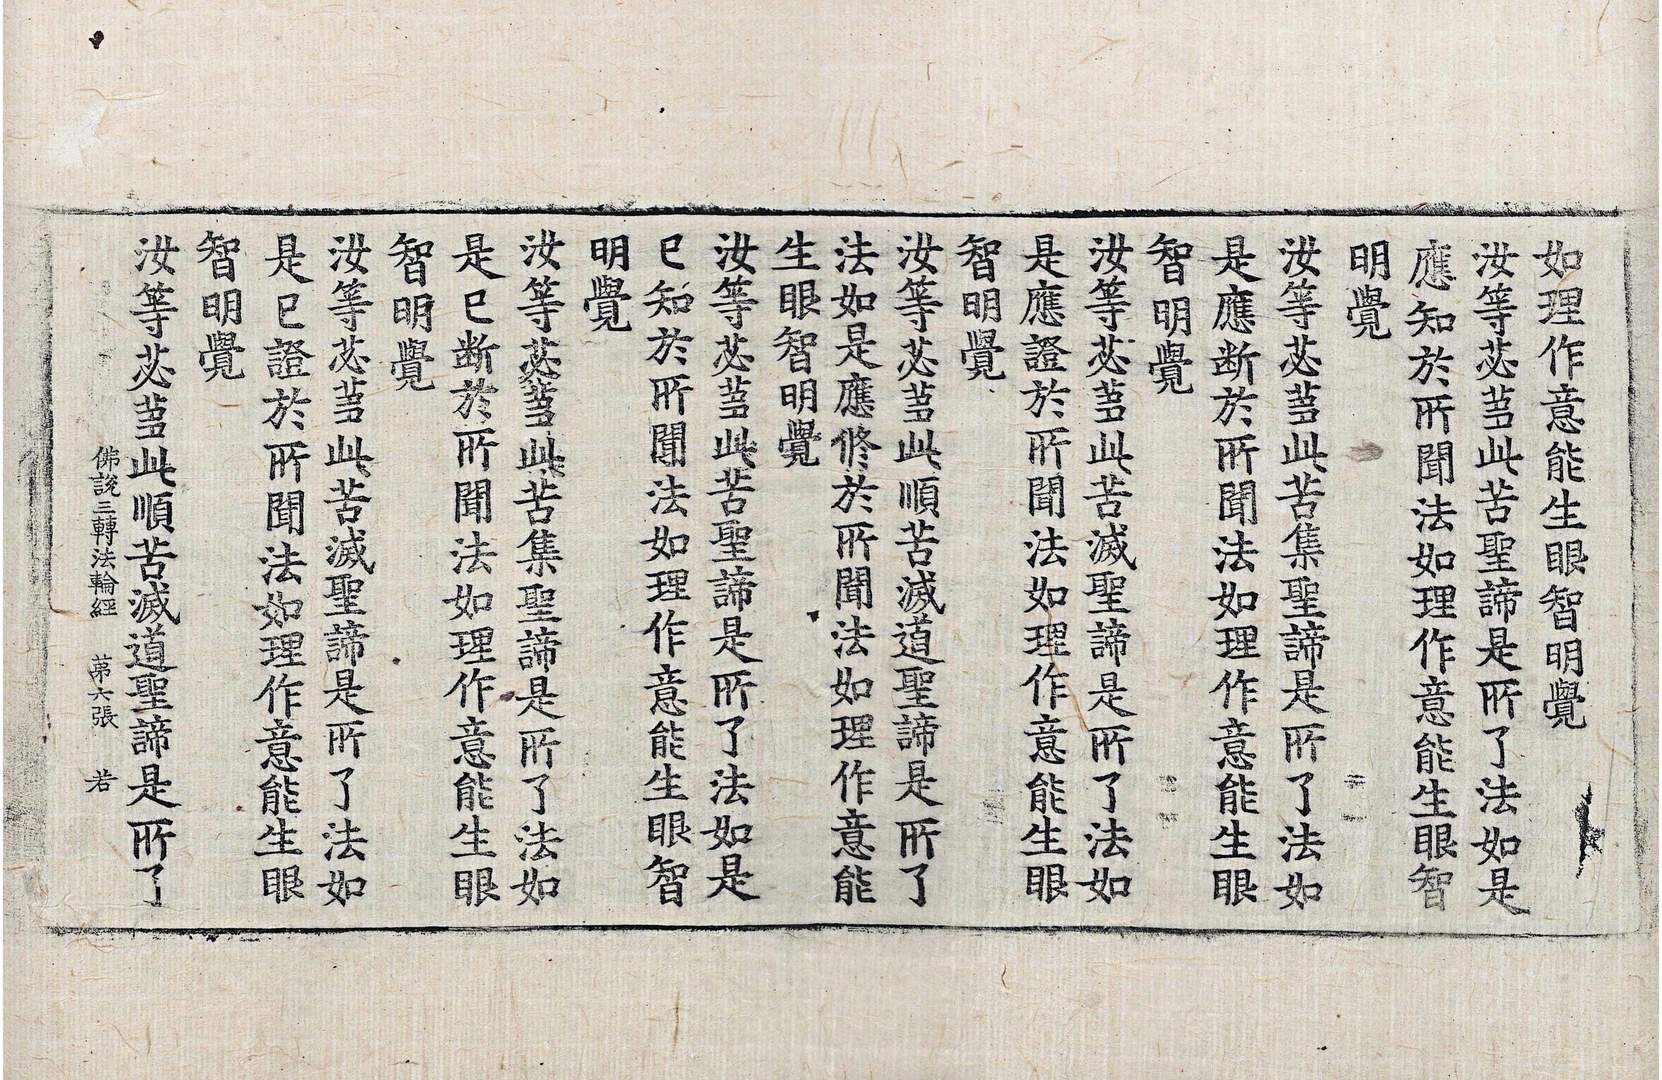 如理作意能生眼智明覺
汝等苾蒭此苦聖諦是所了法如是
應知於所聞法如理作意能生眼智
明覺
汝等苾蒭此苦集聖諦是所了法如
是應断於所聞法如理作意能生眼
智明覺
汝等苾蒭此苦滅聖諦是所了法如
是應證於所聞法如理作意能生眼
智明覺
汝等苾蒭此順苦滅道聖諦是所了
法如是應修於所聞法如理作意能
生眼智明覺
汝等苾蒭此苦聖諦是所了法如是
已知於所聞法如理作意能生眼智
明覺
汝等苾蒭此苦集聖諦是所了法如
是已断於所聞法如理作意能生眼
智明覺
汝等苾蒭此苦滅聖諦是所了法如
是已證於所聞法如理作意能生眼
智明覺
汝等苾蒭此順苦滅道聖諦是所了
佛說三轉法輪經 第六張 若